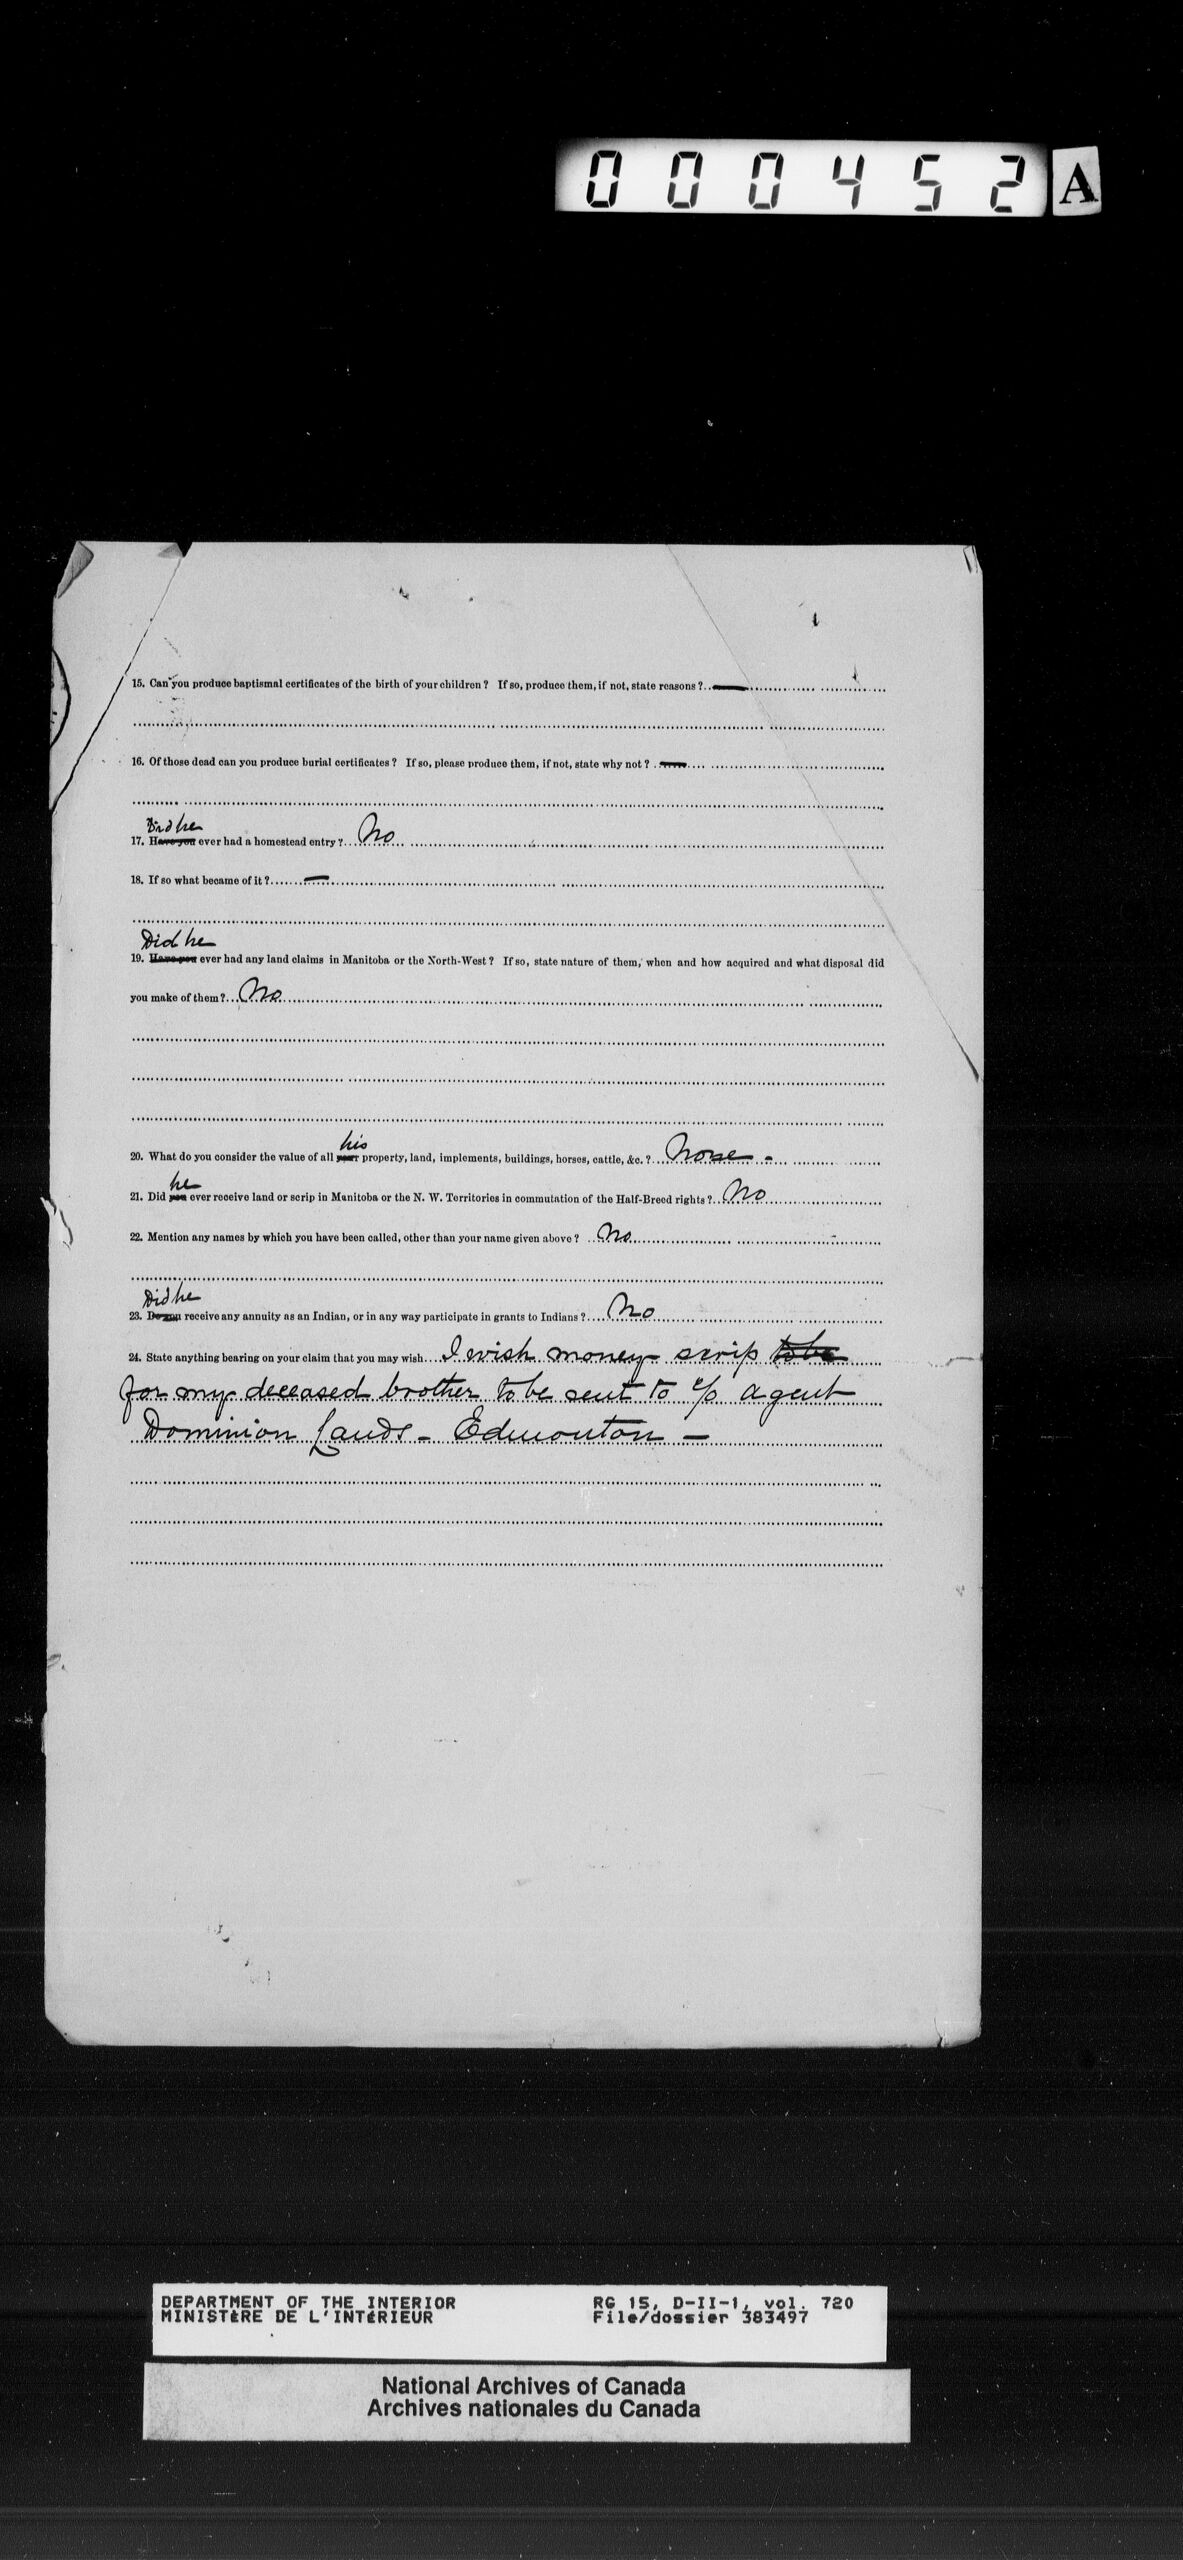 000452 A
15. Can you produce baptismal certificates of the birth of your children? If so, produce them, if not, state reasons? —
16. Of those dead can you produce burial certificates? If so, please produce them, if not, state why not? —
Did he
17. Have you ever had a homestead entry? No
18. If so what became of it? —
Did he
19. Have you ever had any land claims in Manitoba or the North-West? If so, state nature of them, when and how acquired and what disposal did
you make of them? No
his
20. What do you consider the value of all your property, land, implements, buildings, horses, cattle, &c.? None -
he
21. Did you ever receive land or scrip in Manitoba or the N. W. Territories in commutation of the Half-Breed rights? No
22. Mention any names by which you have been called, other than your name given above? No
Did he
23. Do you receive any annuity as an Indian, or in any way participate in grants to Indians? No
24. State anything bearing on your claim that you may wish I wish money scrip to be
for my deceased brother to be sent to c/o agent
Dominion Lands - Edmonton -
DEPARTMENT OF THE INTERIOR RG 15, D-II-1, vol. 720
MINISTÈRE DE L'INTÉRIEUR File/dossier 383497
National Archives of Canada
Archives nationales du Canada